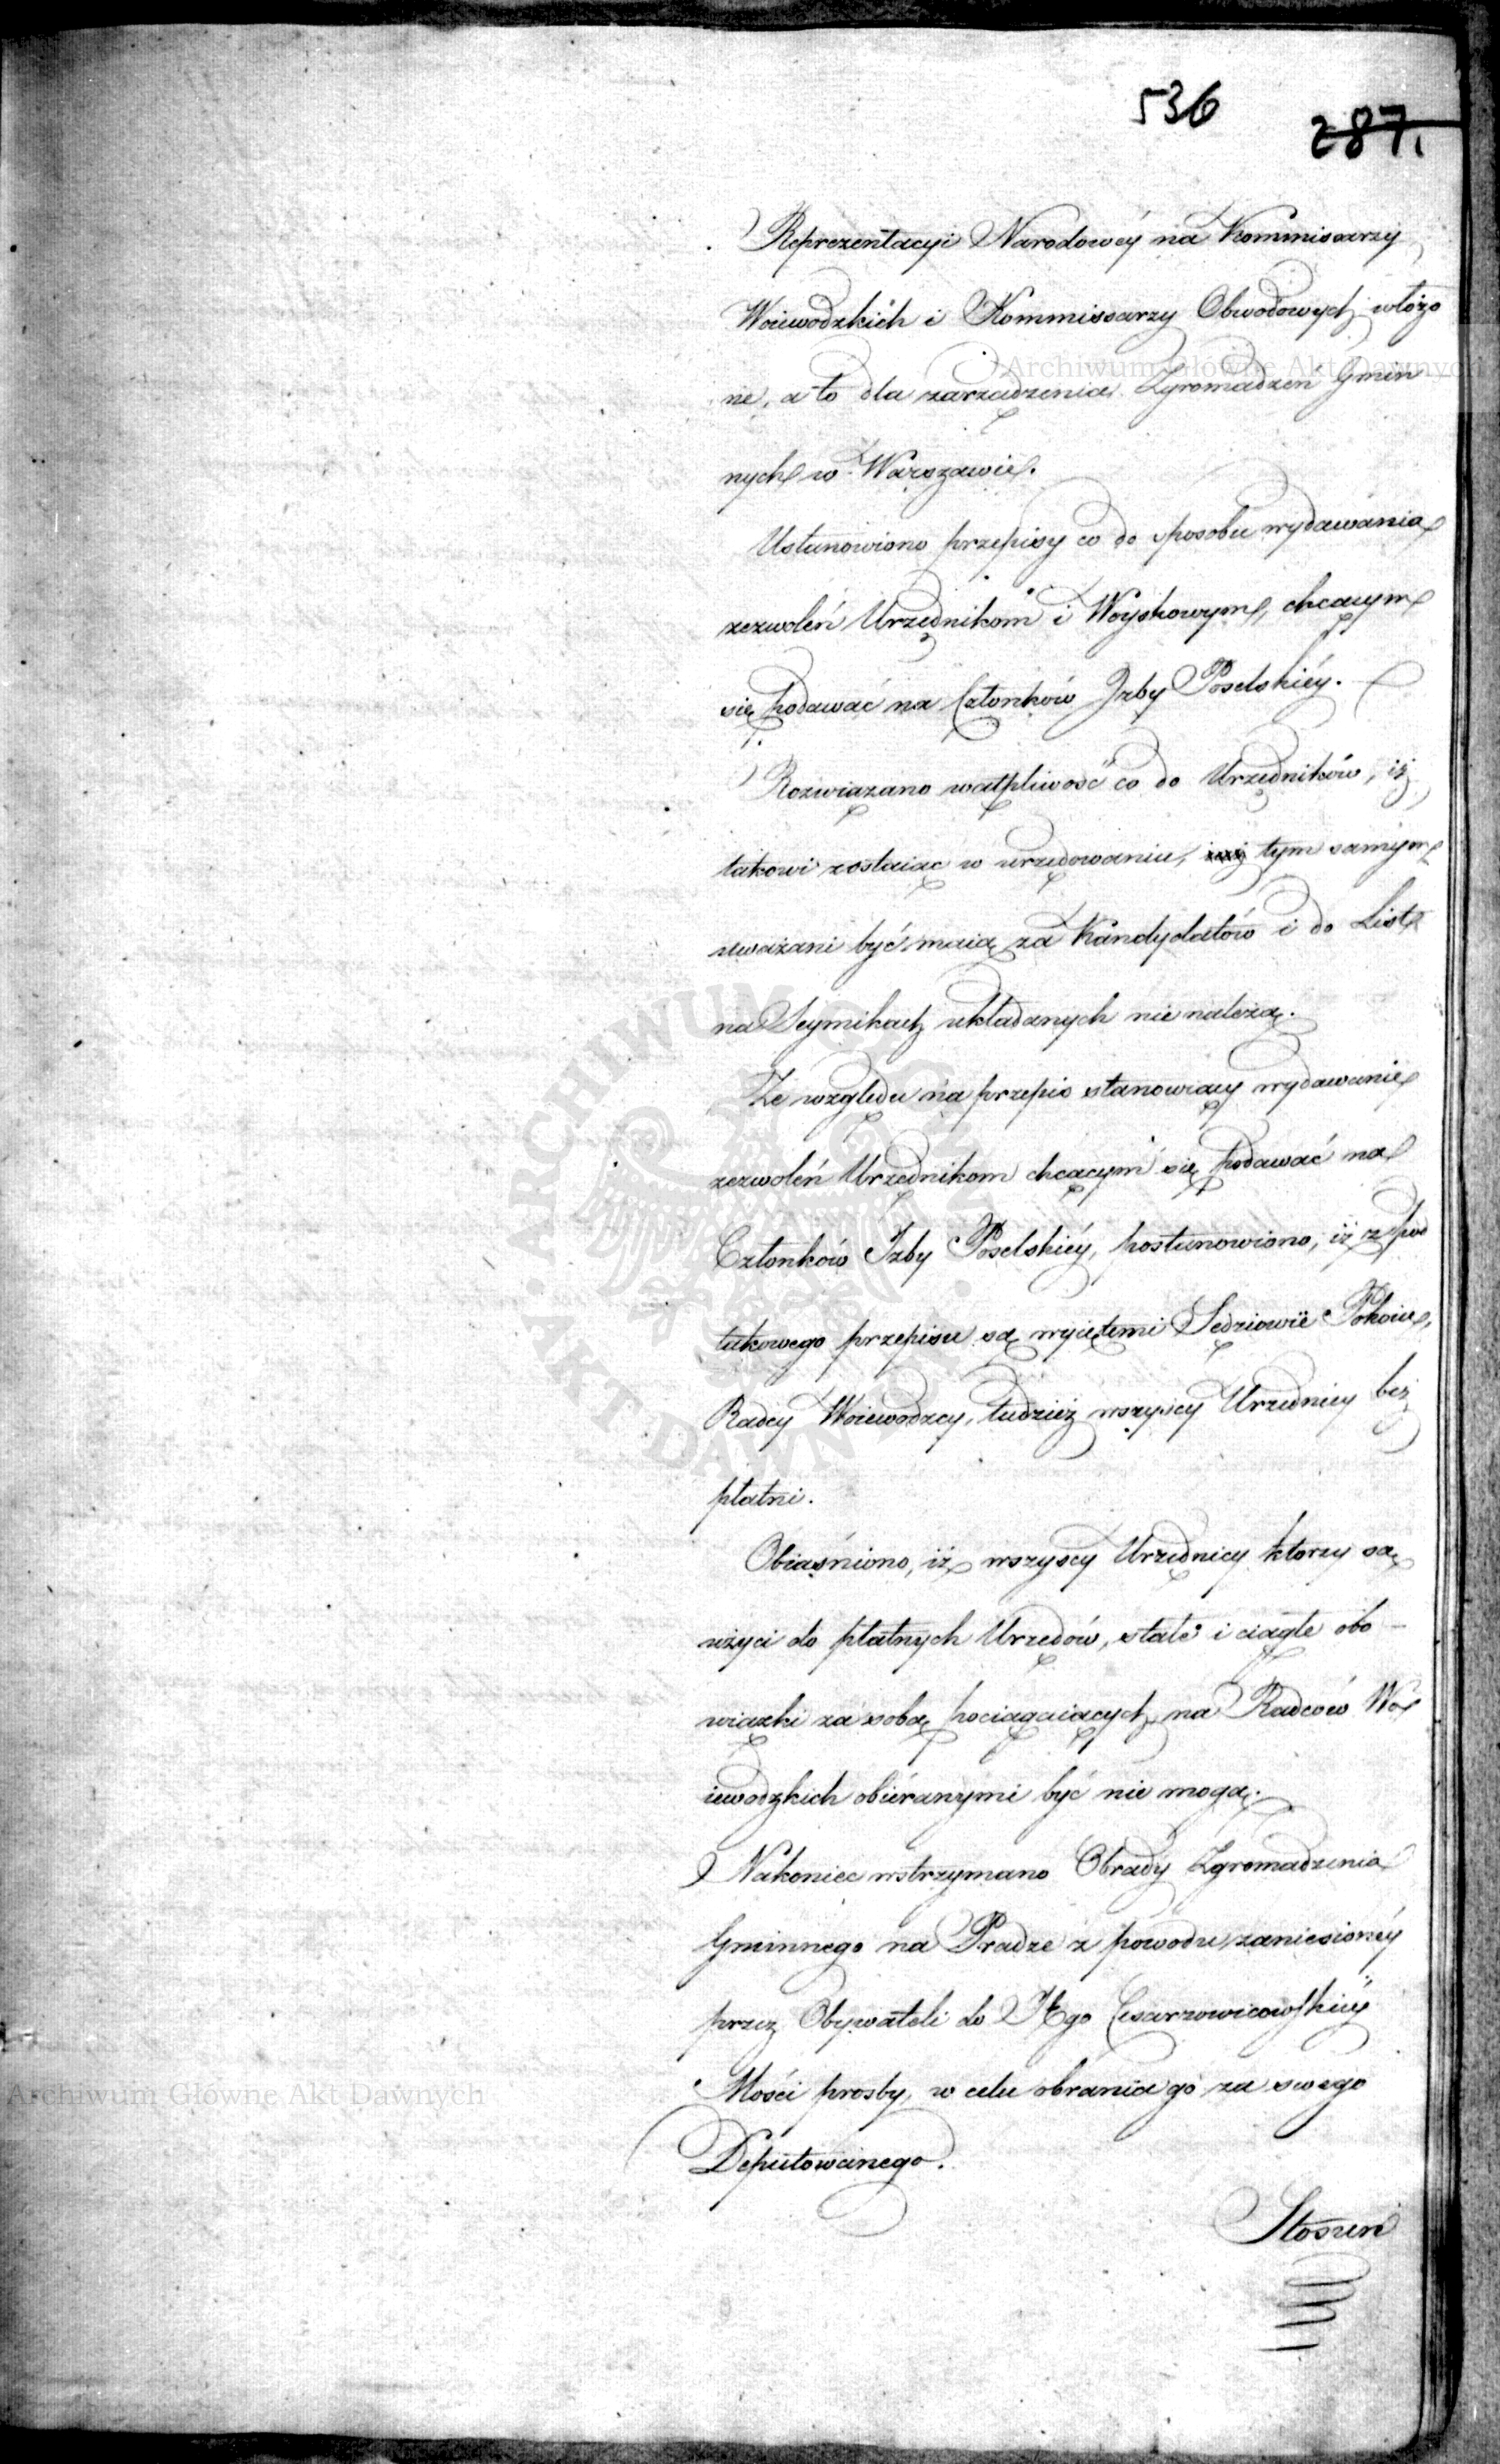 536
287.
Reprezentacyi Narodowéy na Kommissarzy
Woiewodzkich i Kommissarzy Obwodowych włożo
ne, a to dla zarządzenia Zgromadzeń Gmin
nych w Warszawie.
Ustanowiono przepisy co do sposobu wydawania
zezwoleń Urzędnikom i Woyskowym, chcącym
się podawać na Członków Izby Poselskiéy.
Rozwiązano wątpliwość co do Urzędników, iż
takowi zostaiąc w urzędowaniu, tym samym
uważani być maią za Kandydatów i do List
na Seymikach układanych nie należą.
Ze względu na przepis stanowiący wydawanie
zezwoleń Urzędnikom chcącym się podawać na
Członków Izby Poselskiéy, postanowiono, iż z pod
takowego przepisu są wyiętemi Sędziowie Pokoiu,
Radcy Woiewodzcy, tudzież wszyscy Urzędnicy bez
płatni.
Obiaśniono, iż wszyscy Urzędnicy ktorzy są
użyci do płatnych Urzędów, stałe i ciągłe obo
wiązki za sobą pociągaiących, na Radców Wo
iewodzkich obiéranymi być nie mogą.
Nakoniec wstrzymano Obrady Zgromadzenia
Gminnego na Pradze z powodu zaniesionéy
przez Obywateli do Jego Cesarzowicowskiéy
Mości prosby, w celu obrania go za swego
Deputowanego.
Stosun
Archiwum Główne Akt Dawnych
Archiwum Główne Akt Dawnych
ARCHIWUM GŁÓWNE
AKT DAWNYCH